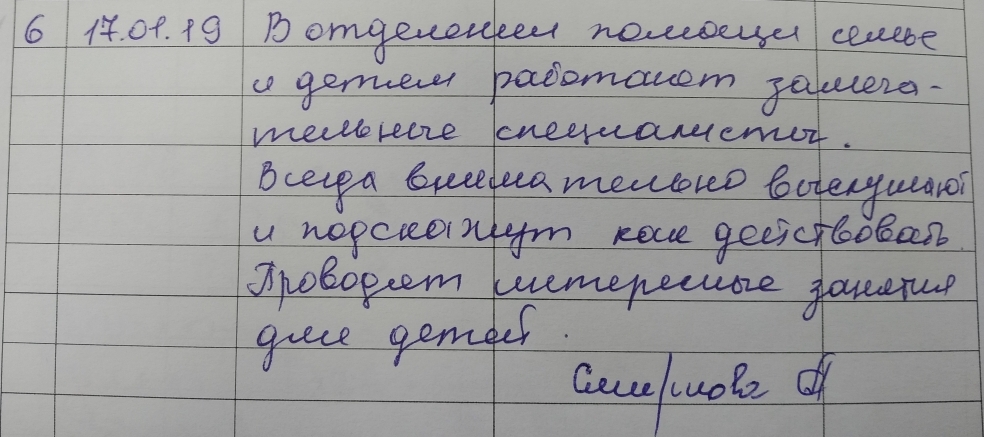 6 17.01.19 В отделении помощи семье
и детям работают замеча-
тельные специалисты.
Всегда внимательно выслушают
и подскажут как действовать.
Проводят интересные занятия
для детей.
Смирнова